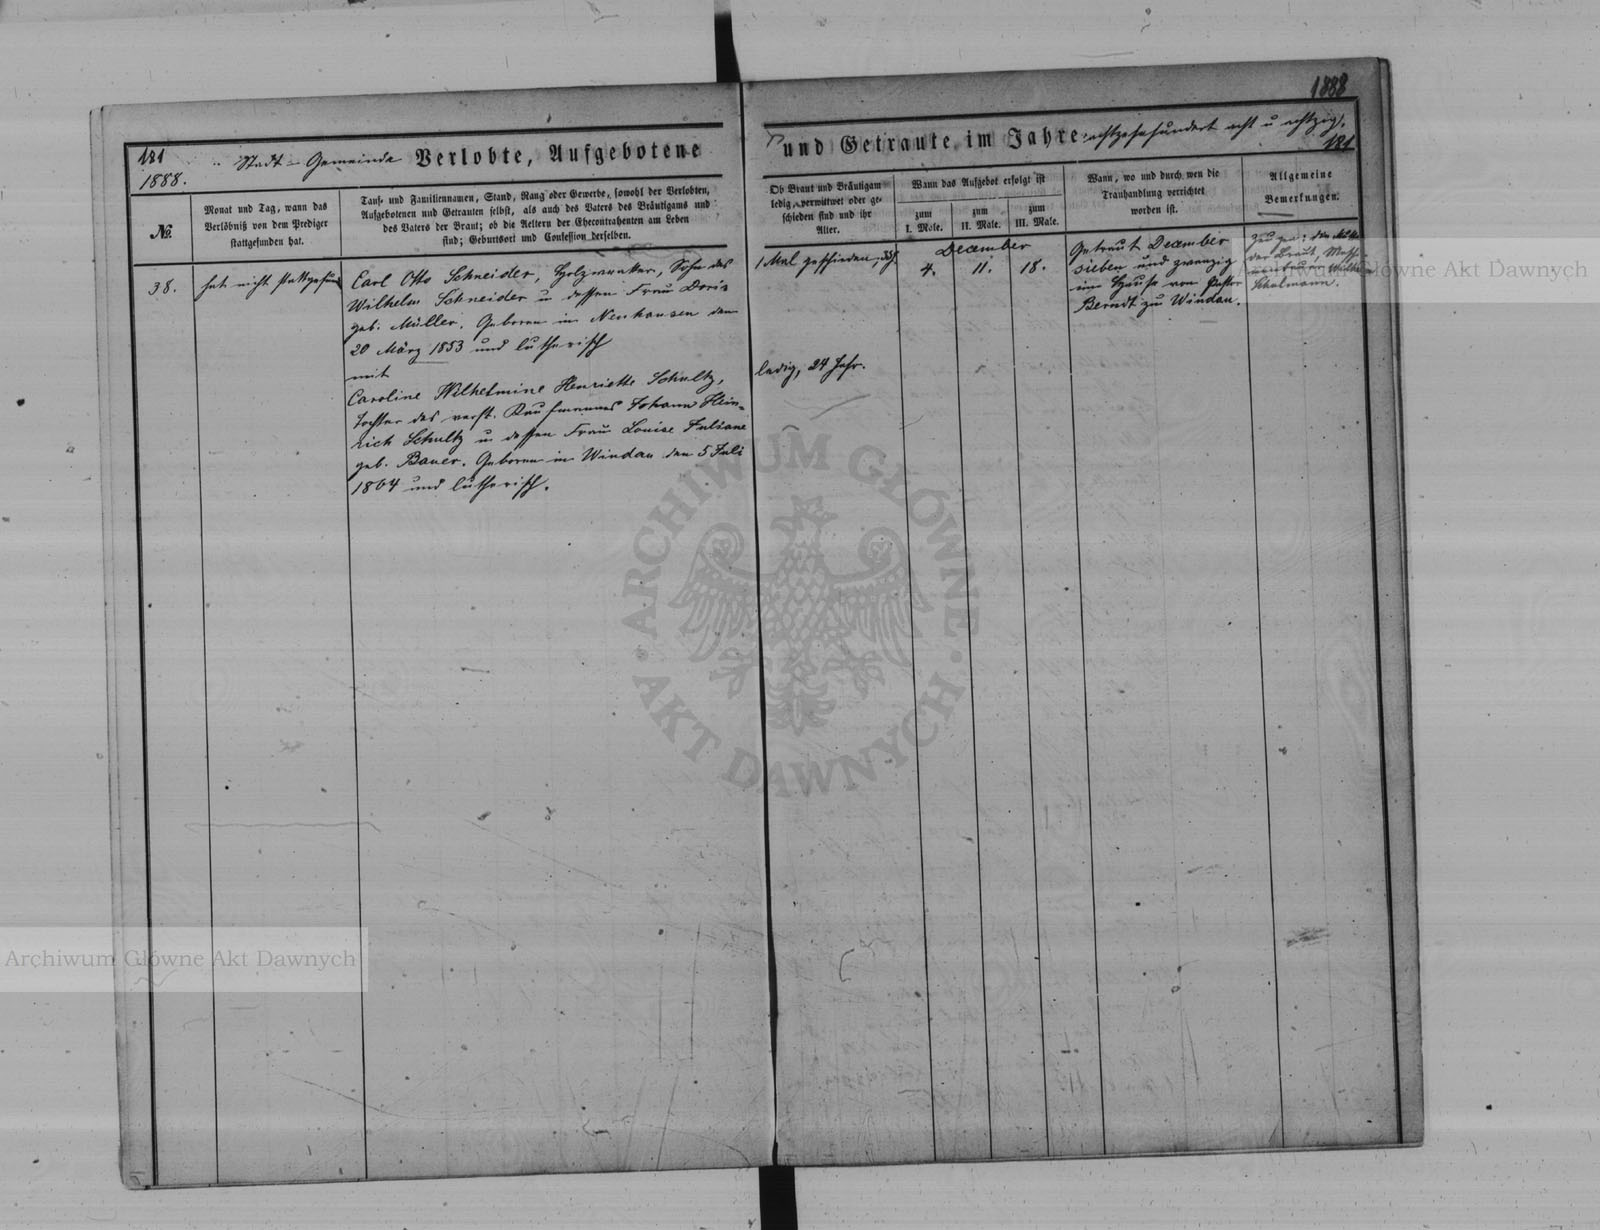 1888
181
1888.
Stadt - Gemeinde Verlobte, Aufgebotene
und Getraute im Jahre achtzehnhundert acht u achtzig.
181
No.
Monat und Tag, wann das
Verlöbniß von dem Prediger
stattgefunden hat.
Tauf- und Familiennamen, Stand, Rang oder Gewerbe, sowohl der Verlobten,
Aufgebotenen und Getrauten selbst, als auch des Vaters des Bräutigams und
des Vaters der Braut; ob die Aeltern der Ehecontrahenten am Leben
sind; Geburtsort und Confession derselben.
Ob Braut und Bräutigam
ledig, verwittwet oder ge-
schieden sind und ihr
Alter.
Wann das Aufgebot erfolgt ist
zum
I. Male.
zum
II. Male.
zum
III. Male.
Wann, wo und durch wen die
Trauhandlung verrichtet
worden ist.
Allgemeine
Bemerkungen.
38.
hat nicht stattgefund
Carl Otto Schneider, Sohn des
Wilhelm Schneider u dessen Frau Doris
geb. Müller. Geboren in Neuhausen den
20 März 1853 und lutherisch
mit
Caroline Wilhelmine Henriette Schultz,
Tochter des verst. Kaufmannes Johann Hein-
rich Schultz u dessen Frau Louise Juliane
geb. Bauer. Geboren in Windau den 5 Juli
1864 und lutherisch.
1 Mal geschieden,
ledig, 24 Jahr.
December
4.
11.
18.
Getraut December
sieben und zwanzig
im Hause von Pastor
Berndt zu Windau.
Zeugen: die Mutter
der Braut,
Schulmann.
Archiwum Główne Akt Dawnych
ARCHIWUM GŁÓWNE
AKT DAWNYCH
Archiwum Główne Akt Dawnych